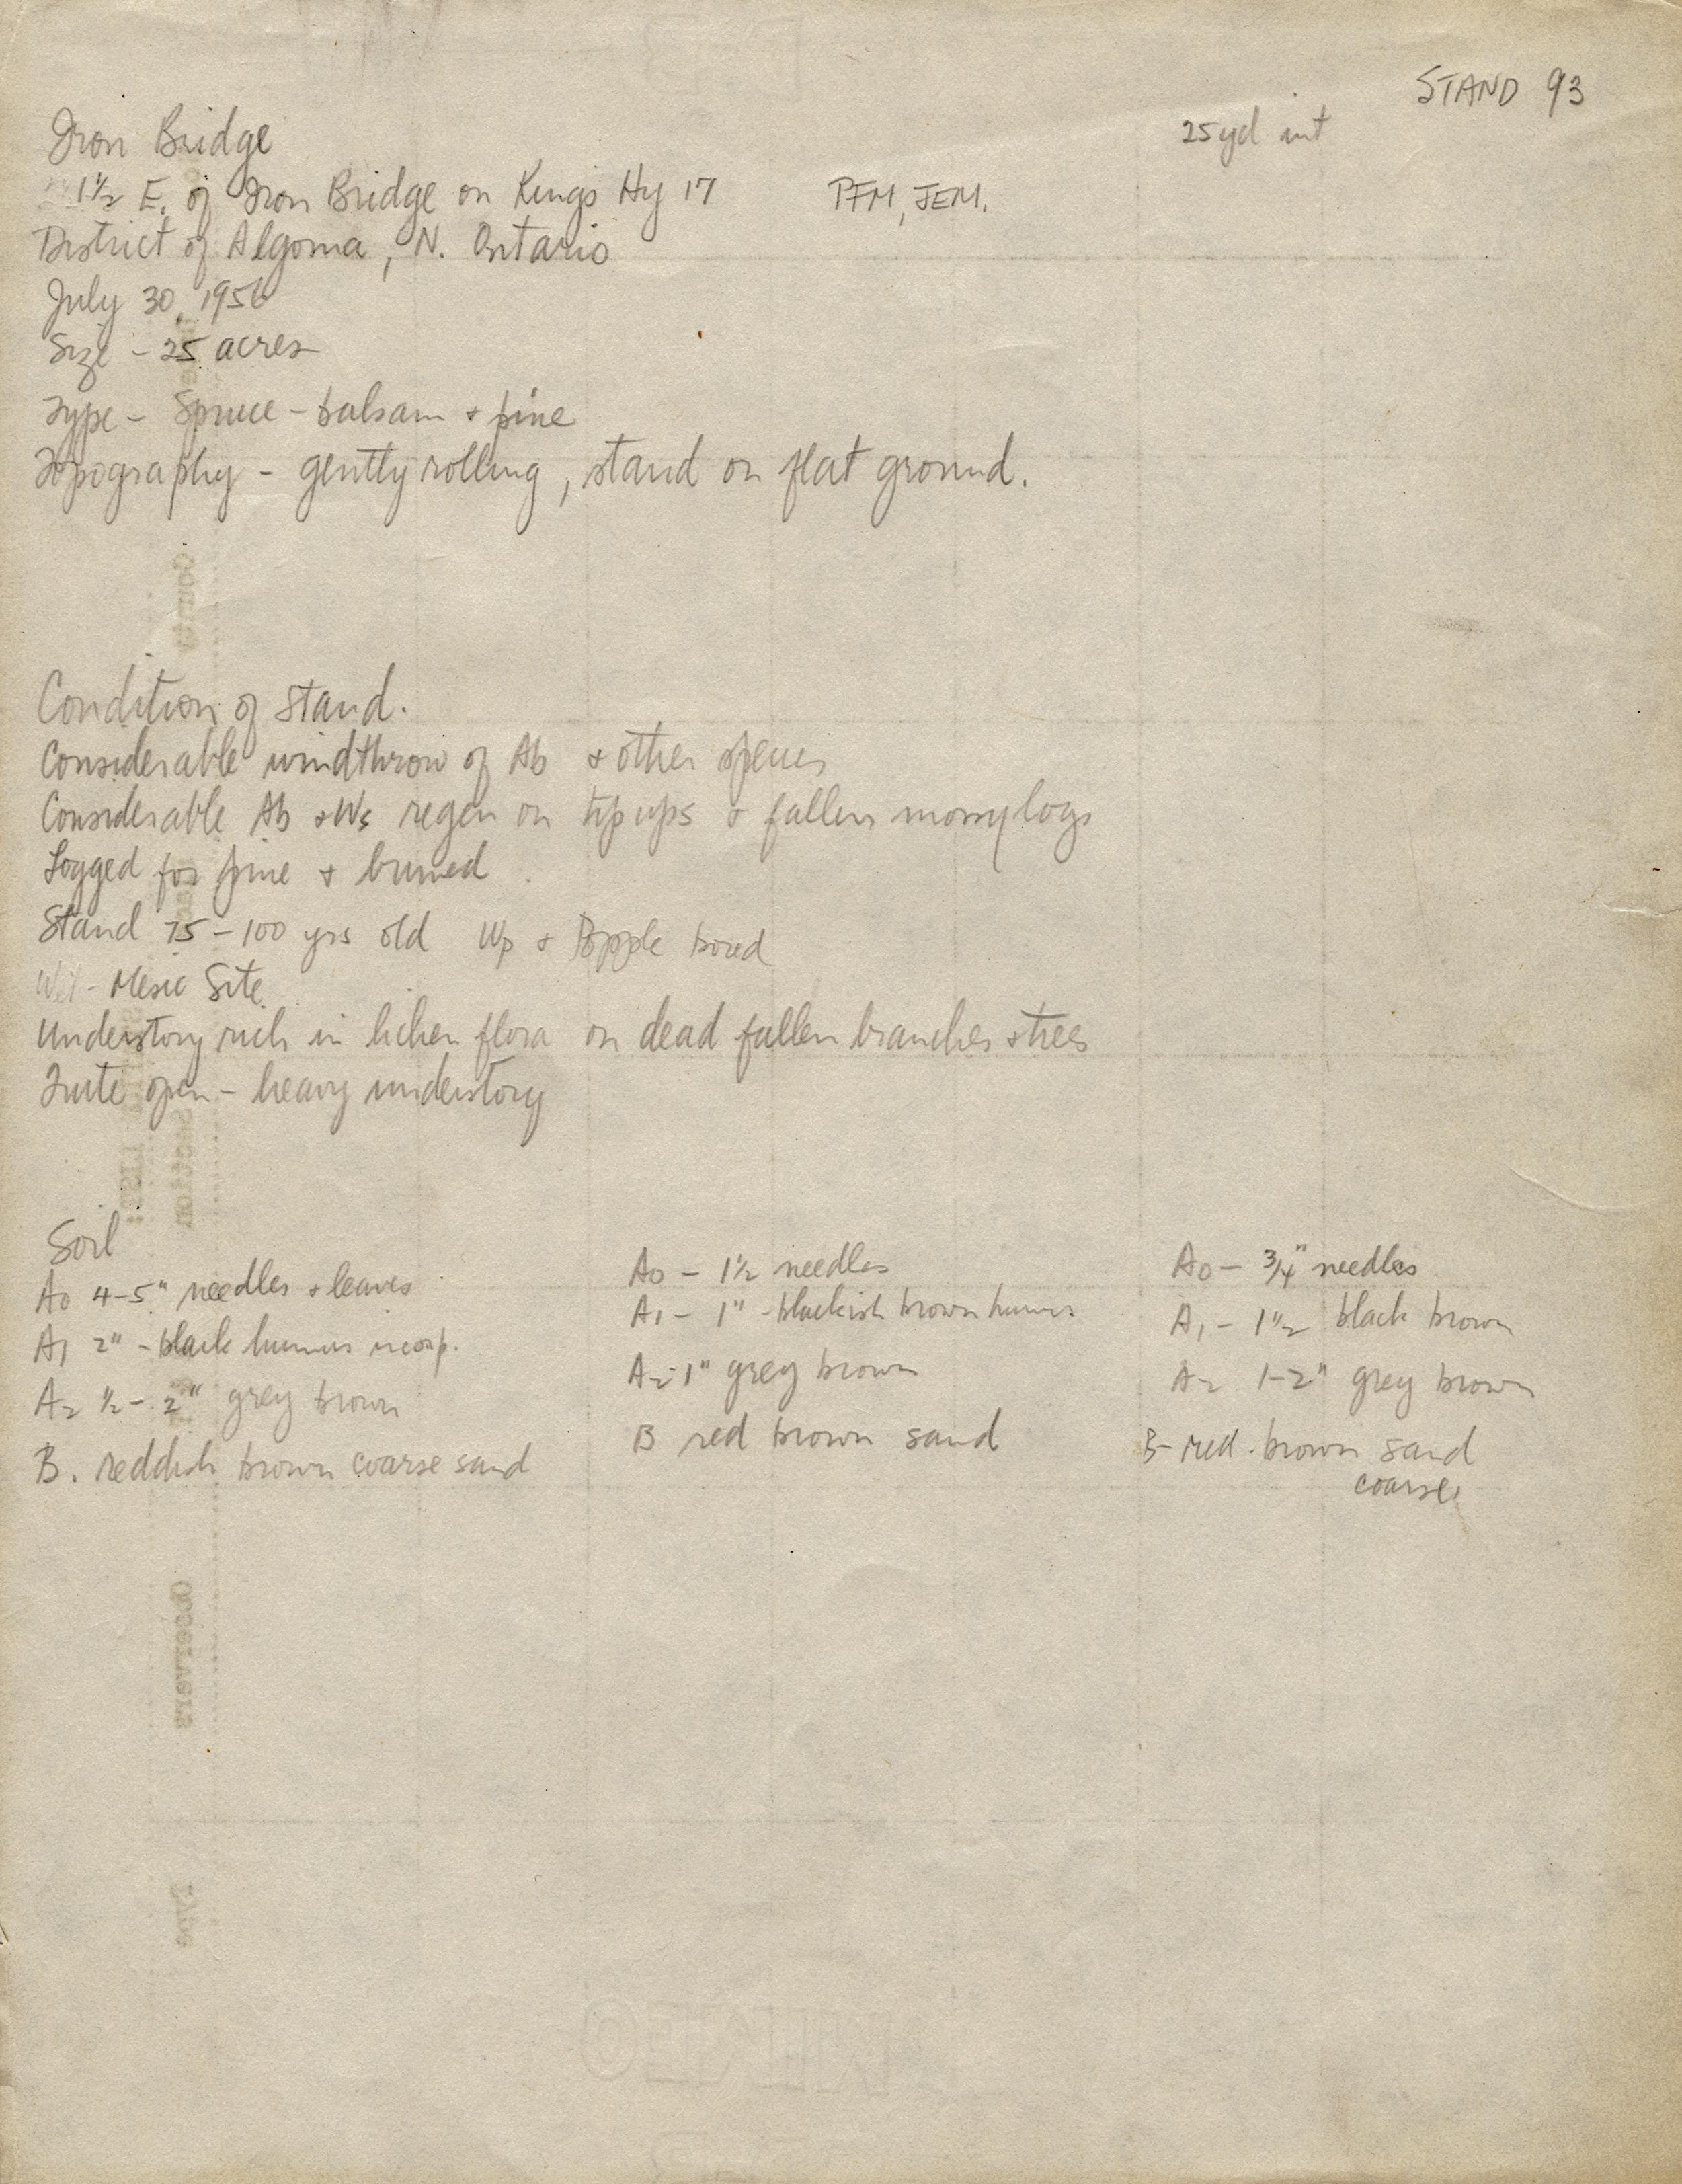 STAND 93
25 yd int
Iron Bridge
1½ E. of Iron Bridge on Kings Hy 17 PFM, JEM.
District of Algoma, N. Ontario
July 30, 1956
Size - 25 acres
Type - Spruce - balsam + pine
Topography - gently rolling, stand on flat ground.
Condition of Stand.
Considerable windthrow of Ab + other species
Considerable Ab + Ws regen on tip ups + fallen mossy logs
Logged for pine + burned
Stand 75-100 yrs old Wp + Popple bored
Wet-Mesic Site
Understory rich in lichen flora on dead fallen branches + trees
Quite open - heavy understory
Soil
A0 4-5" needles + leaves
A1 2" - black humus incorp.
A2 ½ - 2" grey brown
B. reddish brown coarse sand
A0 - 1½ needles
A1 - 1" - blackish brown humus
A2 - 1" grey brown
B red brown sand
A0 - ¾" needles
A1 - 1½ black brown
A2 1-2" grey brown
B - red-brown sand
coarse
County
Section
Observers
Type
MIMEO